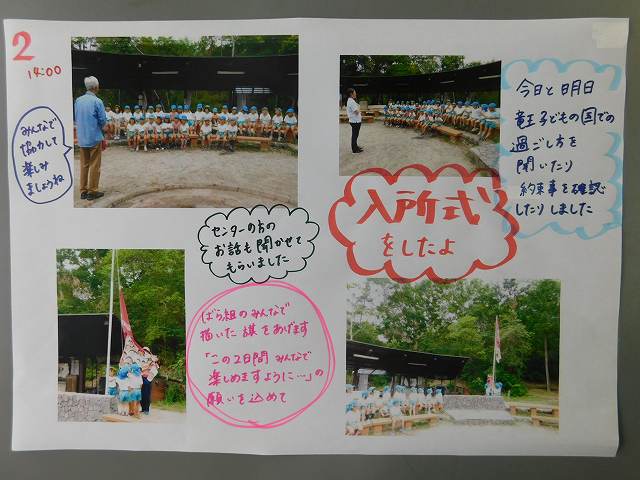 2
14:00
みんなで
協力して
楽しみ
ましょうね
今日と明日
竜王子どもの国での
過ごし方を
聞いたり
約束事を確認
したりしました
入所式
をしたよ
センターの方の
お話も聞かせて
もらいました
ばら組のみんなで
描いた旗をあげます
「この2日間みんなで
楽しめますように…」の
願いを込めて